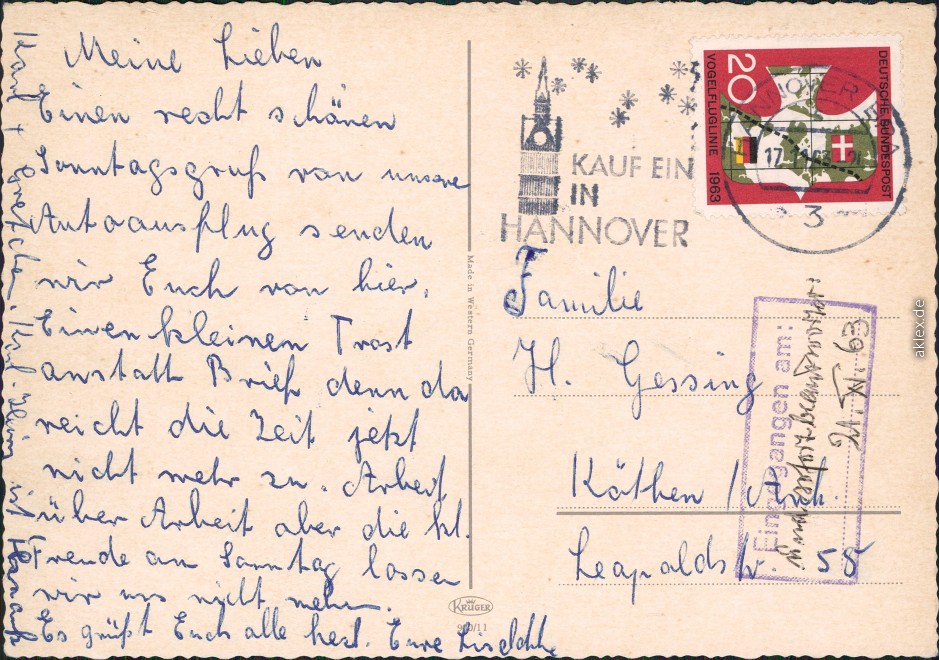 Meine Lieben
Einen recht schönen
Sonntagsgruß von unsere
Autoausflug senden
wir Euch von hier,
Einen kleinen Trost
anstatt Brief denn da
reicht die Zeit jetzt
nicht mehr zu. Arbeit
über Arbeit aber die kl.
Freude am Sonntag lassen
wir uns nicht nehmen.
Es grüßt Euch alle herzl. Eure
Made in Western Germany
KRÜGER
KAUF EIN
IN
HANNOVER
HANNOVER
3
DEUTSCHE BUNDESPOST
20
VOGELFLUGLINIE 1963
Familie
H. Gessing
Köthen / Anh.
Leopoldstr. 58
Eingegangen am:
aklex.de